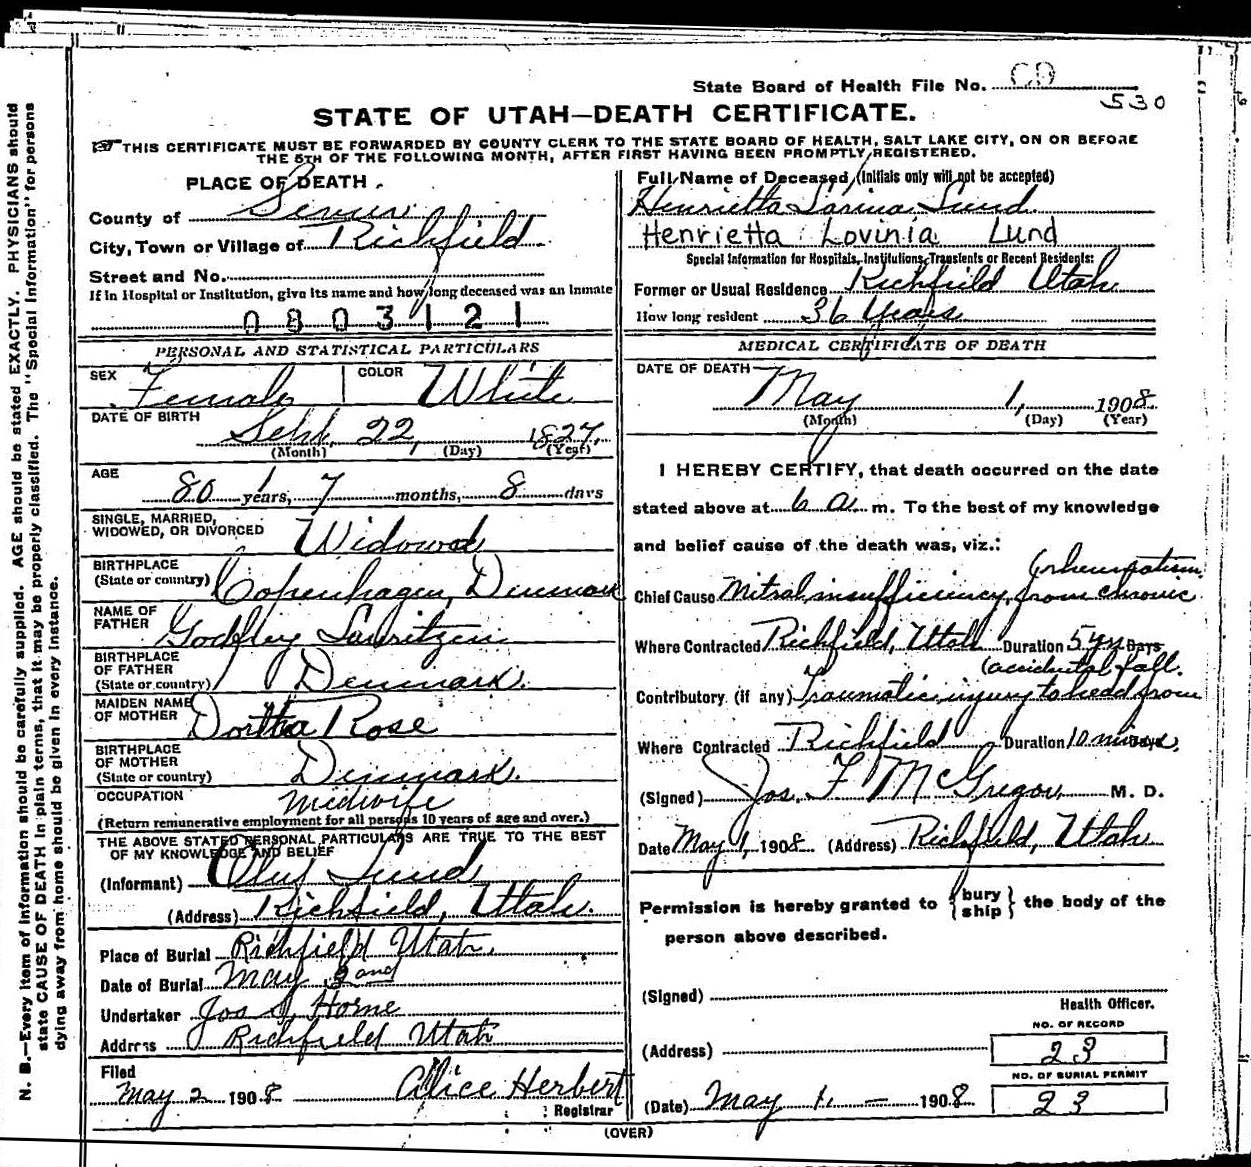 State Board of Health File No. CD
530
STATE OF UTAH—DEATH CERTIFICATE.
THIS CERTIFICATE MUST BE FORWARDED BY COUNTY CLERK TO THE STATE BOARD OF HEALTH, SALT LAKE CITY, ON OR BEFORE
THE 5TH OF THE FOLLOWING MONTH, AFTER FIRST HAVING BEEN PROMPTLY REGISTERED.
PLACE OF DEATH.
County of Sevier
City, Town or Village of Richfield
Street and No.
If in Hospital or Institution, give its name and how long deceased was an inmate
0803121
PERSONAL AND STATISTICAL PARTICULARS
SEX Female COLOR White
DATE OF BIRTH Sept. 22, 1827.
(Month) (Day) (Year)
AGE 80 years, 7 months, 8 days
SINGLE, MARRIED,
WIDOWED, OR DIVORCED Widowed
BIRTHPLACE
(State or country) Copenhagen, Denmark
NAME OF
FATHER Godfrey Lauritzen
BIRTHPLACE
OF FATHER
(State or country) Denmark.
MAIDEN NAME
OF MOTHER Dortha Rose
BIRTHPLACE
OF MOTHER
(State or country) Denmark.
OCCUPATION Midwife
(Return remunerative employment for all persons 10 years of age and over.)
THE ABOVE STATED PERSONAL PARTICULARS ARE TRUE TO THE BEST
OF MY KNOWLEDGE AND BELIEF
(Informant) Oluf Lund
(Address) Richfield, Utah.
Place of Burial Richfield Utah.
Date of Burial May 3 and
Undertaker Jos S. Horne
Address Richfield Utah
Filed
May 2 1908 Alice Herbert
Registrar
(OVER)
Full Name of Deceased, (Initials only will not be accepted)
Henrietta Lovinia Lund
Special Information for Hospitals, Institutions, Transients or Recent Residents:
Former or Usual Residence Richfield Utah
How long resident 36 Years
MEDICAL CERTIFICATE OF DEATH
DATE OF DEATH May 1, 1908.
(Month) (Day) (Year)
I HEREBY CERTIFY, that death occurred on the date
stated above at 6 a. m. To the best of my knowledge
and belief cause of the death was, viz.:
(rheumatism.
Chief Cause Mitral insufficiency, from chronic
Where Contracted Richfield, Utah Duration 5 yrs Days
(accidental fall.
Contributory (if any) Traumatic injury to head from
Where Contracted Richfield Duration 10 mins
(Signed) Jos. F McGregor M. D.
Date May 1, 1908 (Address) Richfield, Utah
Permission is hereby granted to {bury
ship} the body of the
person above described.
(Signed)
Health Officer.
NO. OF RECORD
(Address) 23
NO. OF BURIAL PERMIT
(Date) May 1, — 1908. 23
N. B.—Every item of information should be carefully supplied. AGE should be stated EXACTLY. PHYSICIANS should
state CAUSE OF DEATH in plain terms, that it may be properly classified. The "Special Information" for persons
dying away from home should be given in every instance.